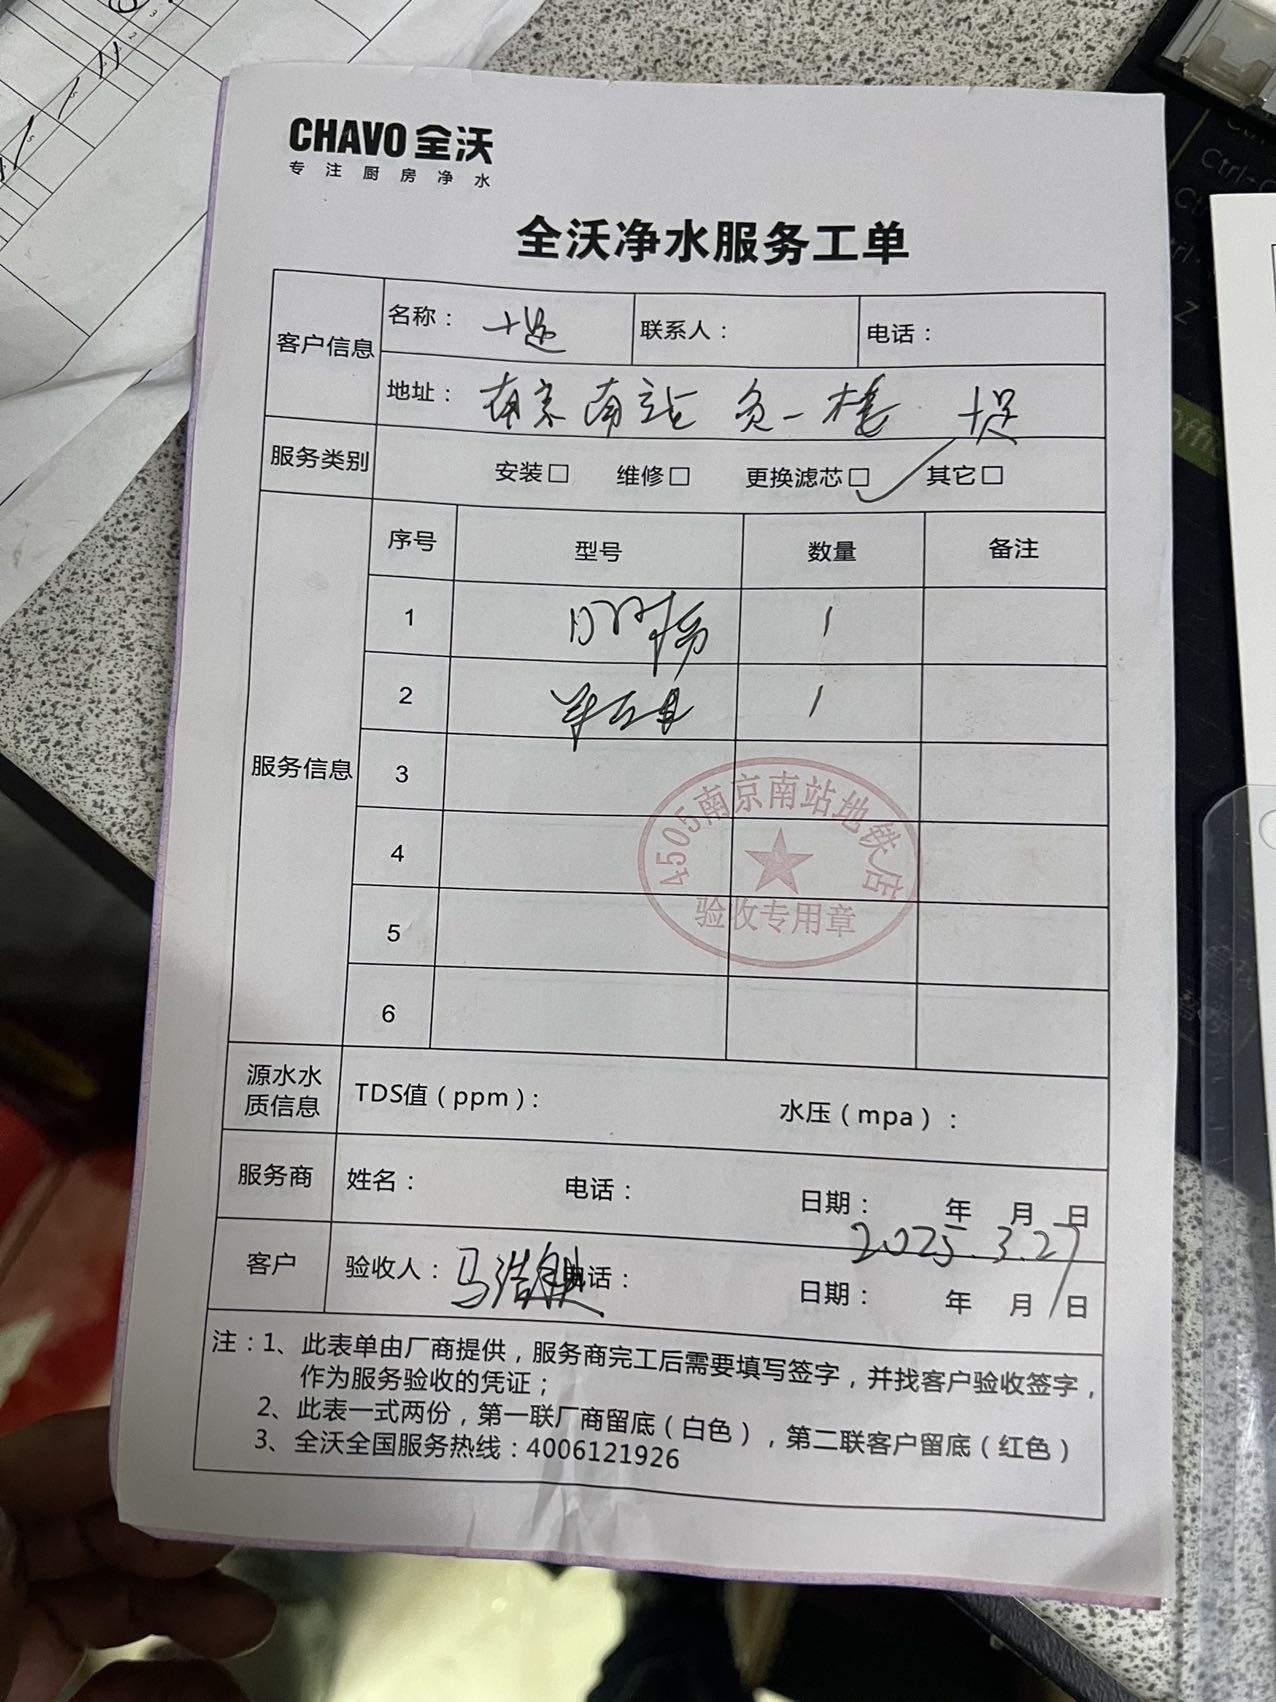 CHAVO 全沃
专注厨房净水
全沃净水服务工单
客户信息
名称：
联系人：
电话：
地址： 南京南站 负一楼
服务类别
安装□ 维修□ 更换滤芯□ 其它□
服务信息
序号 型号 数量 备注
1 1
2 1
3
4
5
6
4505南京南站地铁店
验收专用章
源水水质信息
TDS值（ppm）：
水压（mpa）：
服务商
姓名： 电话： 日期： 年 月 日
2025.3.27
客户
验收人： 马浩 电话： 日期： 年 月 日
注：1、此表单由厂商提供，服务商完工后需要填写签字，并找客户验收签字，
作为服务验收的凭证；
2、此表一式两份，第一联厂商留底（白色），第二联客户留底（红色）
3、全沃全国服务热线：4006121926